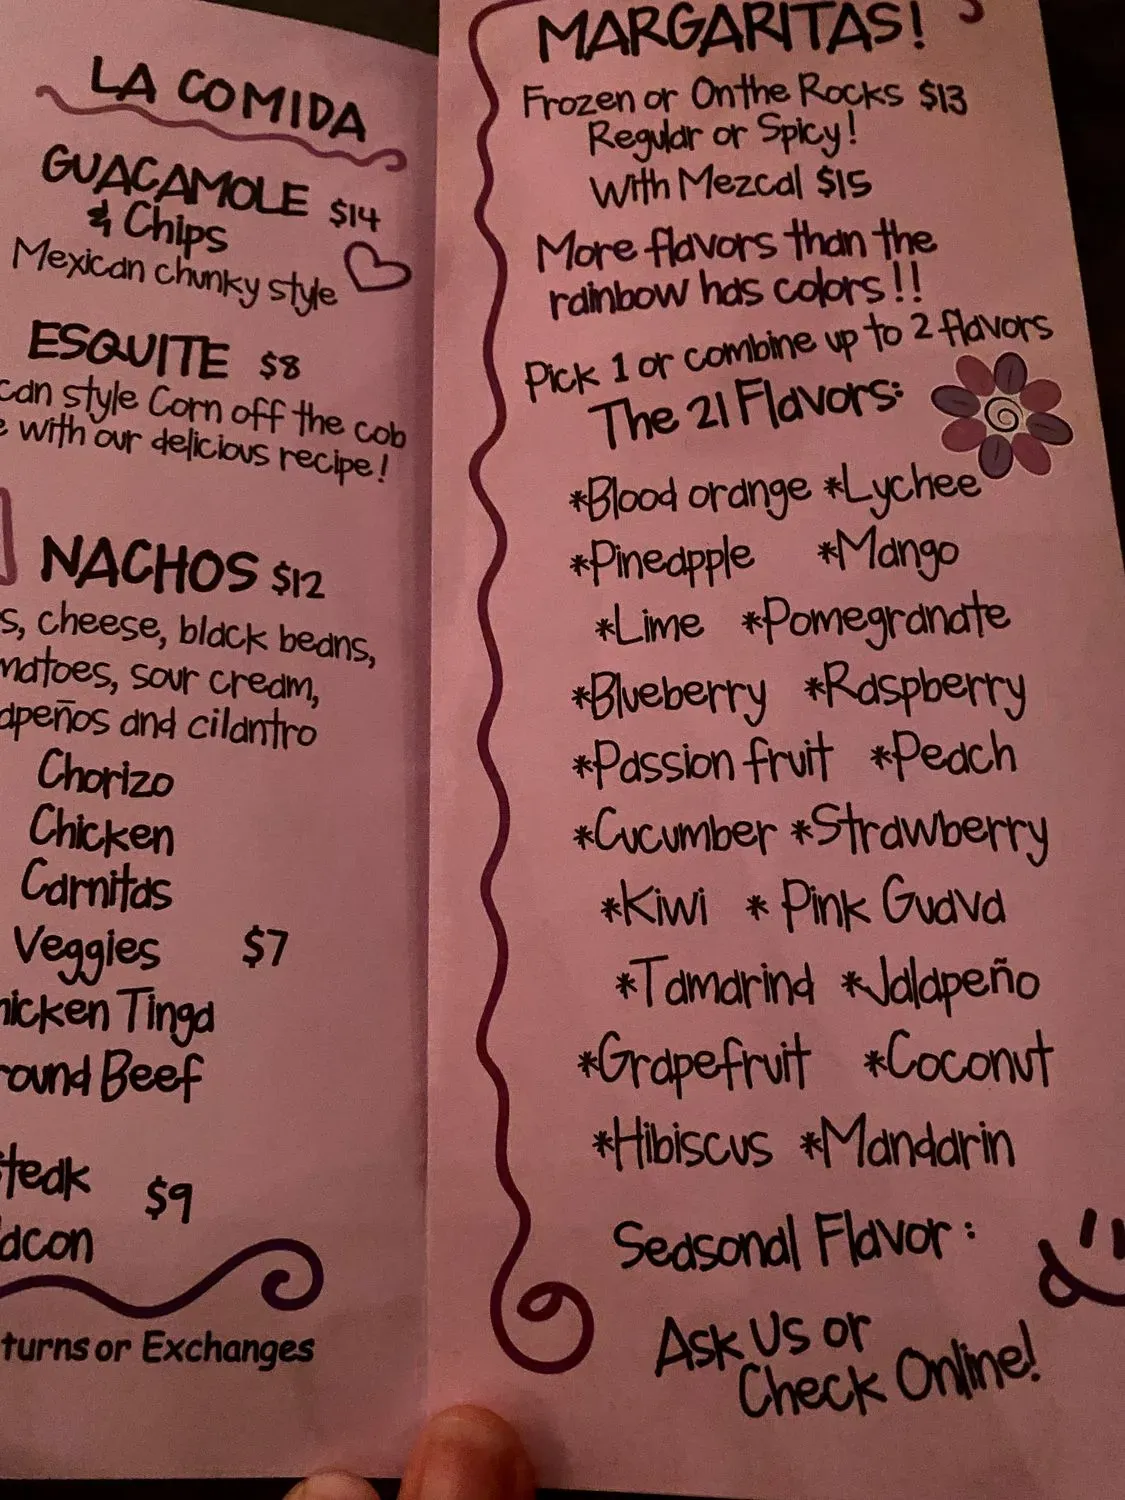 LA COMIDA
GUACAMOLE $14
& Chips
Mexican chunky style
ESQUITE $8
style Corn off the cob
with our delicious recipe!
NACHOS $12
cheese, black beans,
sour cream,
and cilantro
Chorizo
Chicken
Carnitas
Veggies $7
Tinga
Beef
$9
or Exchanges
MARGARITAS!
Frozen or On the Rocks $13
Regular or Spicy!
With Mezcal $15
More flavors than the
rainbow has colors!!
Pick 1 or combine up to 2 flavors
The 21 Flavors:
*Blood orange *Lychee
*Pineapple *Mango
*Lime *Pomegranate
*Blueberry *Raspberry
*Passion fruit *Peach
*Cucumber *Strawberry
*Kiwi * Pink Guava
*Tamarind *Jalapeño
*Grapefruit *Coconut
*Hibiscus *Mandarin
Seasonal Flavor :
Ask Us or
Check Online!